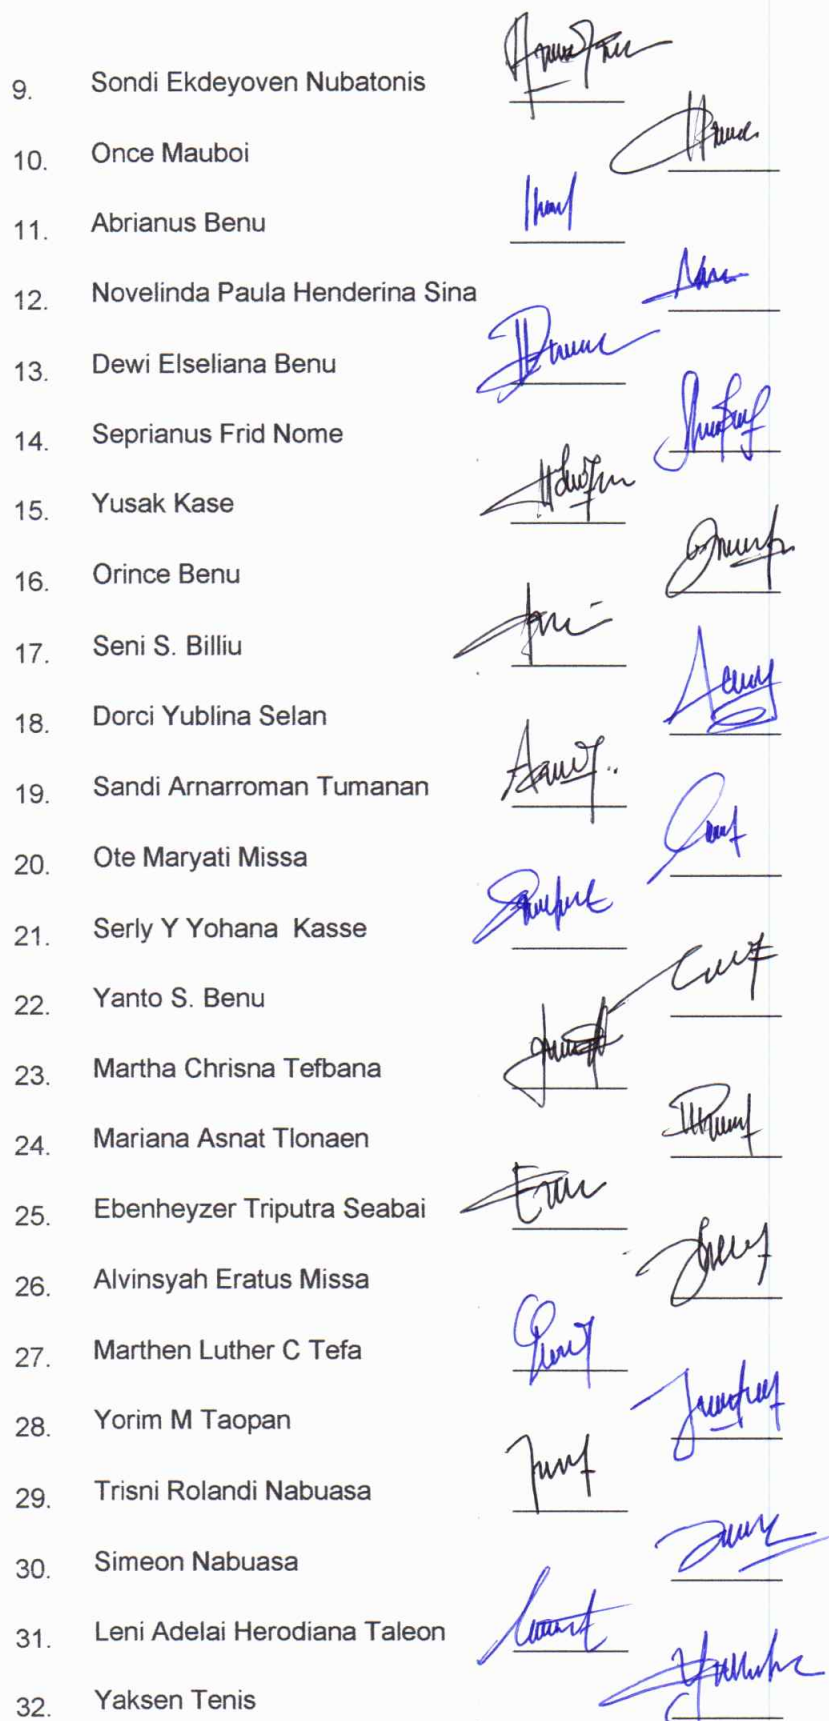 9. Sondi Ekdeyoven Nubatonis
10. Once Mauboi
11. Abrianus Benu
12. Novelinda Paula Henderina Sina
13. Dewi Elseliana Benu
14. Seprianus Frid Nome
15. Yusak Kase
16. Orince Benu
17. Seni S. Billiu
18. Dorci Yublina Selan
19. Sandi Arnarroman Tumanan
20. Ote Maryati Missa
21. Serly Y Yohana  Kasse
22. Yanto S. Benu
23. Martha Chrisna Tefbana
24. Mariana Asnat Tlonaen
25. Ebenheyzer Triputra Seabai
26. Alvinsyah Eratus Missa
27. Marthen Luther C Tefa
28. Yorim M Taopan
29. Trisni Rolandi Nabuasa
30. Simeon Nabuasa
31. Leni Adelai Herodiana Taleon
32. Yaksen Tenis